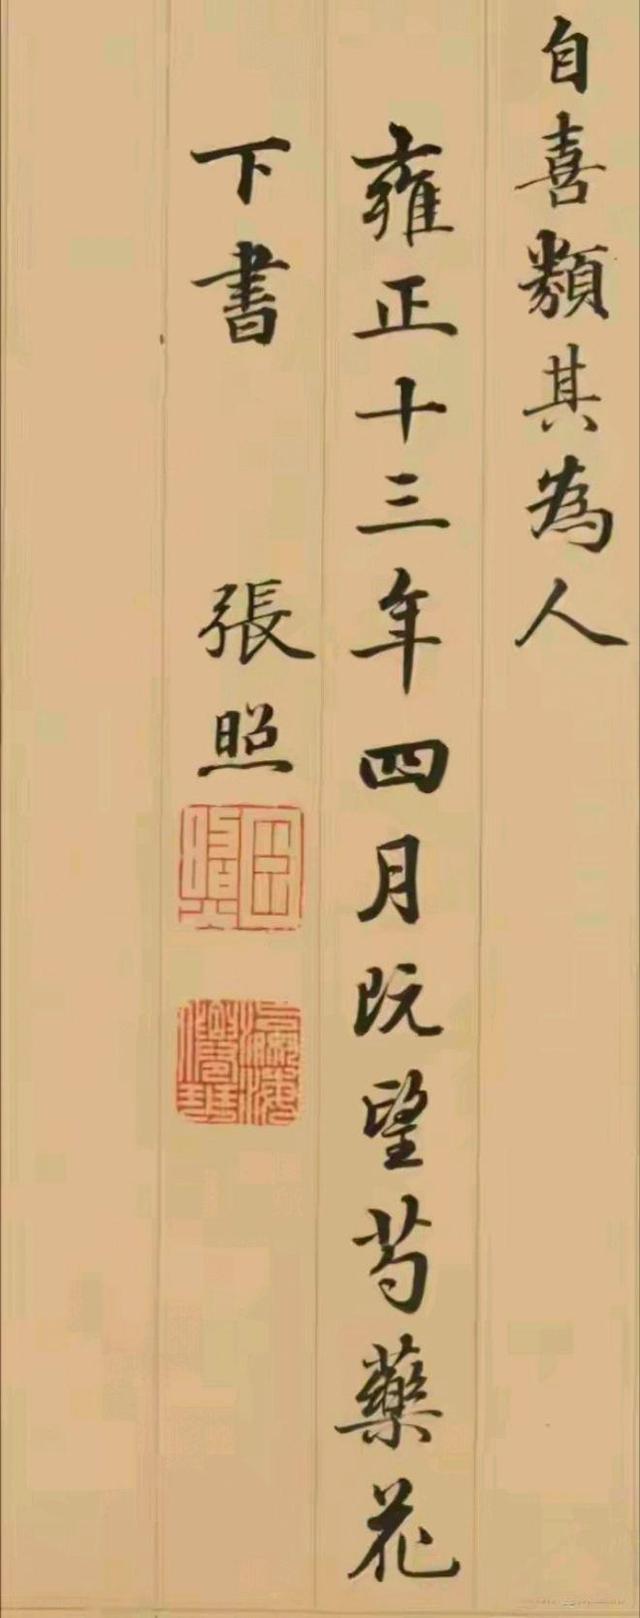 自喜類其為人
雍正十三年四月既望芍藥花
下書 張照
瀛海